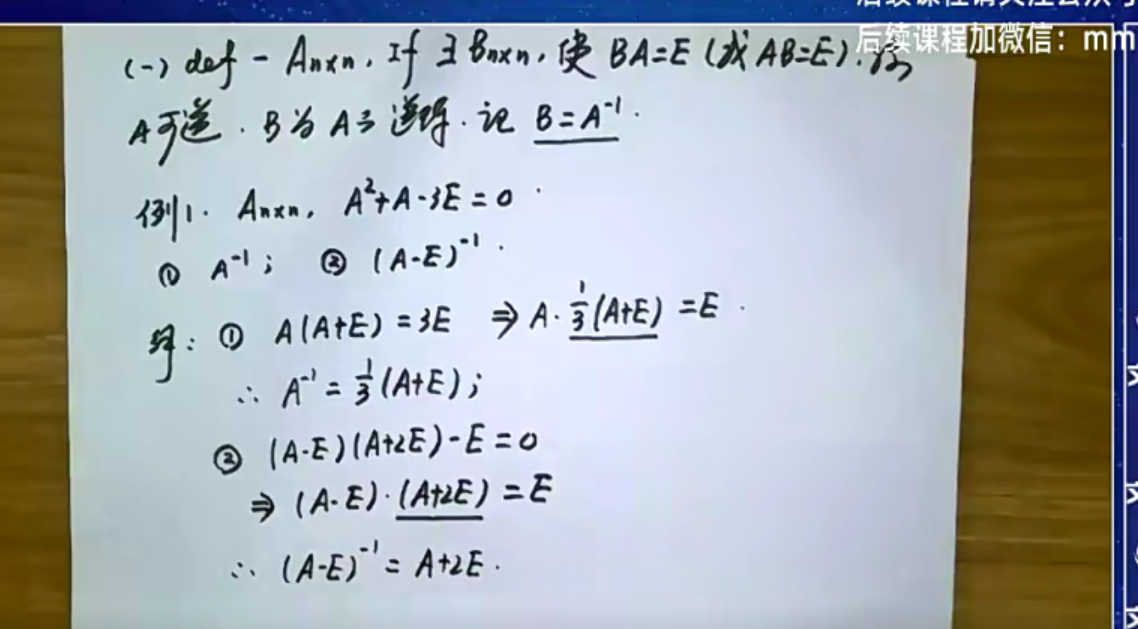 后续课程加微信：mm
(一) def - Aₙₓₙ. If ∃ Bₙₓₙ, 使 BA=E (或 AB=E). 称
A可逆. B为A之逆阵. 记 B=A⁻¹.
例1. Aₙₓₙ, A²+A-3E=0.
① A⁻¹; ② (A-E)⁻¹.
解: ① A(A+E)=3E ⇒ A·1/3(A+E)=E.
∴ A⁻¹=1/3(A+E);
② (A-E)(A+2E)-E=0
⇒ (A-E)·(A+2E)=E
∴ (A-E)⁻¹=A+2E.